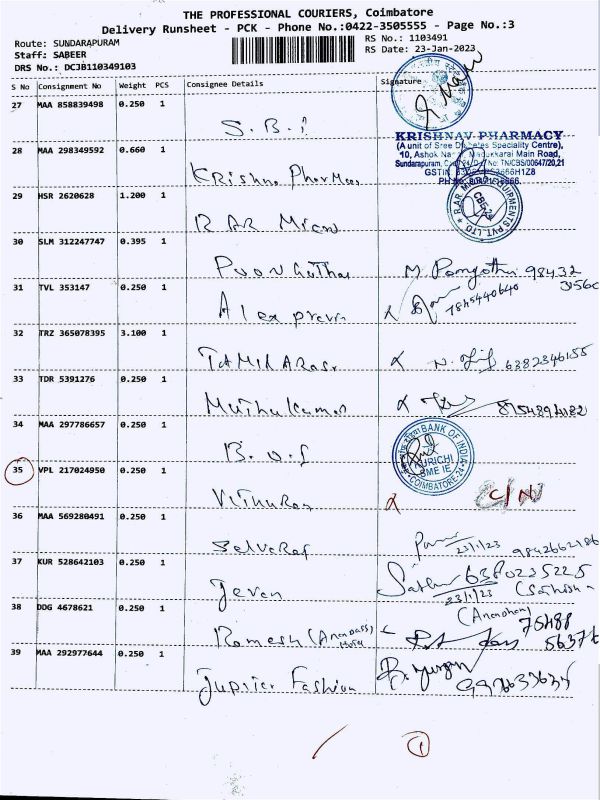 THE PROFESSIONAL COURIERS, Coimbatore
Delivery Runsheet - PCK - Phone No.:0422-3505555 - Page No.:3
Route: SUNDARAPURAM
Staff: SABEER
DRS No.: DCJB110349103
RS No.: 1103491
RS Date: 23-Jan-2023
S No Consignment No Weight PCS Consignee Details Signature
27 MAA 858839498 0.250 1
S.B.I
KRISHNAV PHARMACY
(A unit of Sree Diabetes Speciality Centre),
10, Ashok Nagar, Madukkarai Main Road,
28 MAA 298349592 0.660 1
Krishna Pharmacy
29 HSR 2620628 1.200 1
RAR Micro
RAR MICRO EQUIPMENTS PVT. LTD
CBE-24
30 SLM 312247747 0.395 1
Poongothai M. Poongothai 98432
31 TVL 353147 0.250 1
Alex pravin 7845440640
32 TRZ 365078395 3.100 1
TAMILARASI 6382346155
33 TDR 5391276 0.250 1
Muthukumar
34 MAA 297786657 0.250 1
B.O.I
BANK OF INDIA
KURICHI
SME IE
COIMBATORE-24
35 VPL 217024950 0.250 1
C/N
36 MAA 569280491 0.250 1
Selvaraj 23/1/23 9842662186
37 KUR 528642103 0.250 1
Jeven 6380235225
23/1/23 (Sathish)
38 DDG 4678621 0.250 1
Ramesh (Anandass) (Anandhan) 75488
56376
39 MAA 292977644 0.250 1
Jupiter Fashion
1